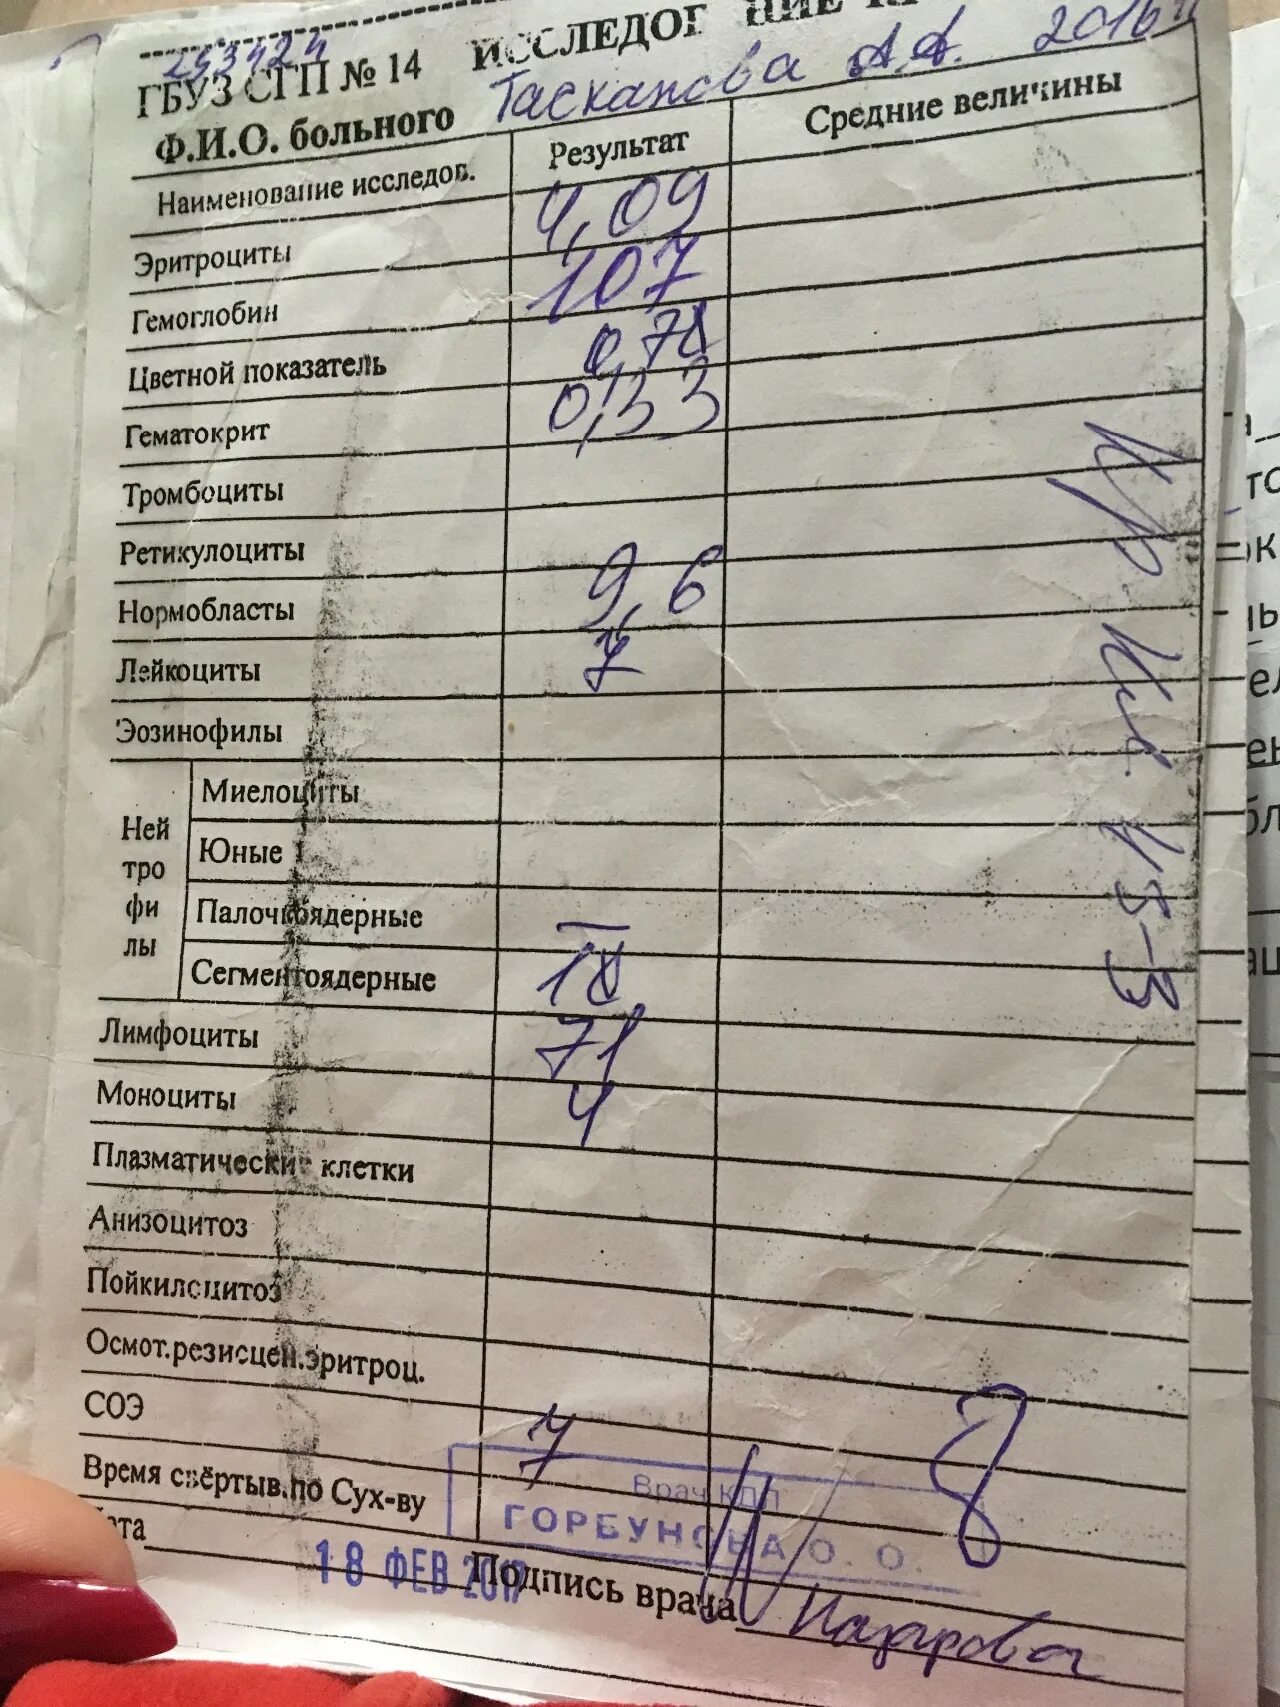 253424
ГБУЗ СГП № 14 ИССЛЕДОВ НИЕ
Ф.И.О. больного А.А. 2016
Наименование исследов. Результат Средние величины
Эритроциты 4,09
Гемоглобин 107
Цветной показатель 0,78
Гематокрит 0,33
Тромбоциты
Ретикулоциты
Нормобласты 9,6
Лейкоциты 7
Эозинофилы
Нейтрофилы
Миелоциты
Юные
Палочкоядерные —
Сегментоядерные 18
Лимфоциты 71
Моноциты 4
Плазматические клетки
Анизоцитоз
Пойкилоцитоз
Осмот.резисцен.эритроц.
СОЭ 7
Время свёртыв.по Сух-ву
Врач КДЛ
ГОРБУНОВА О. О.
18 ФЕВ 2017
Подпись врача Назарова
8